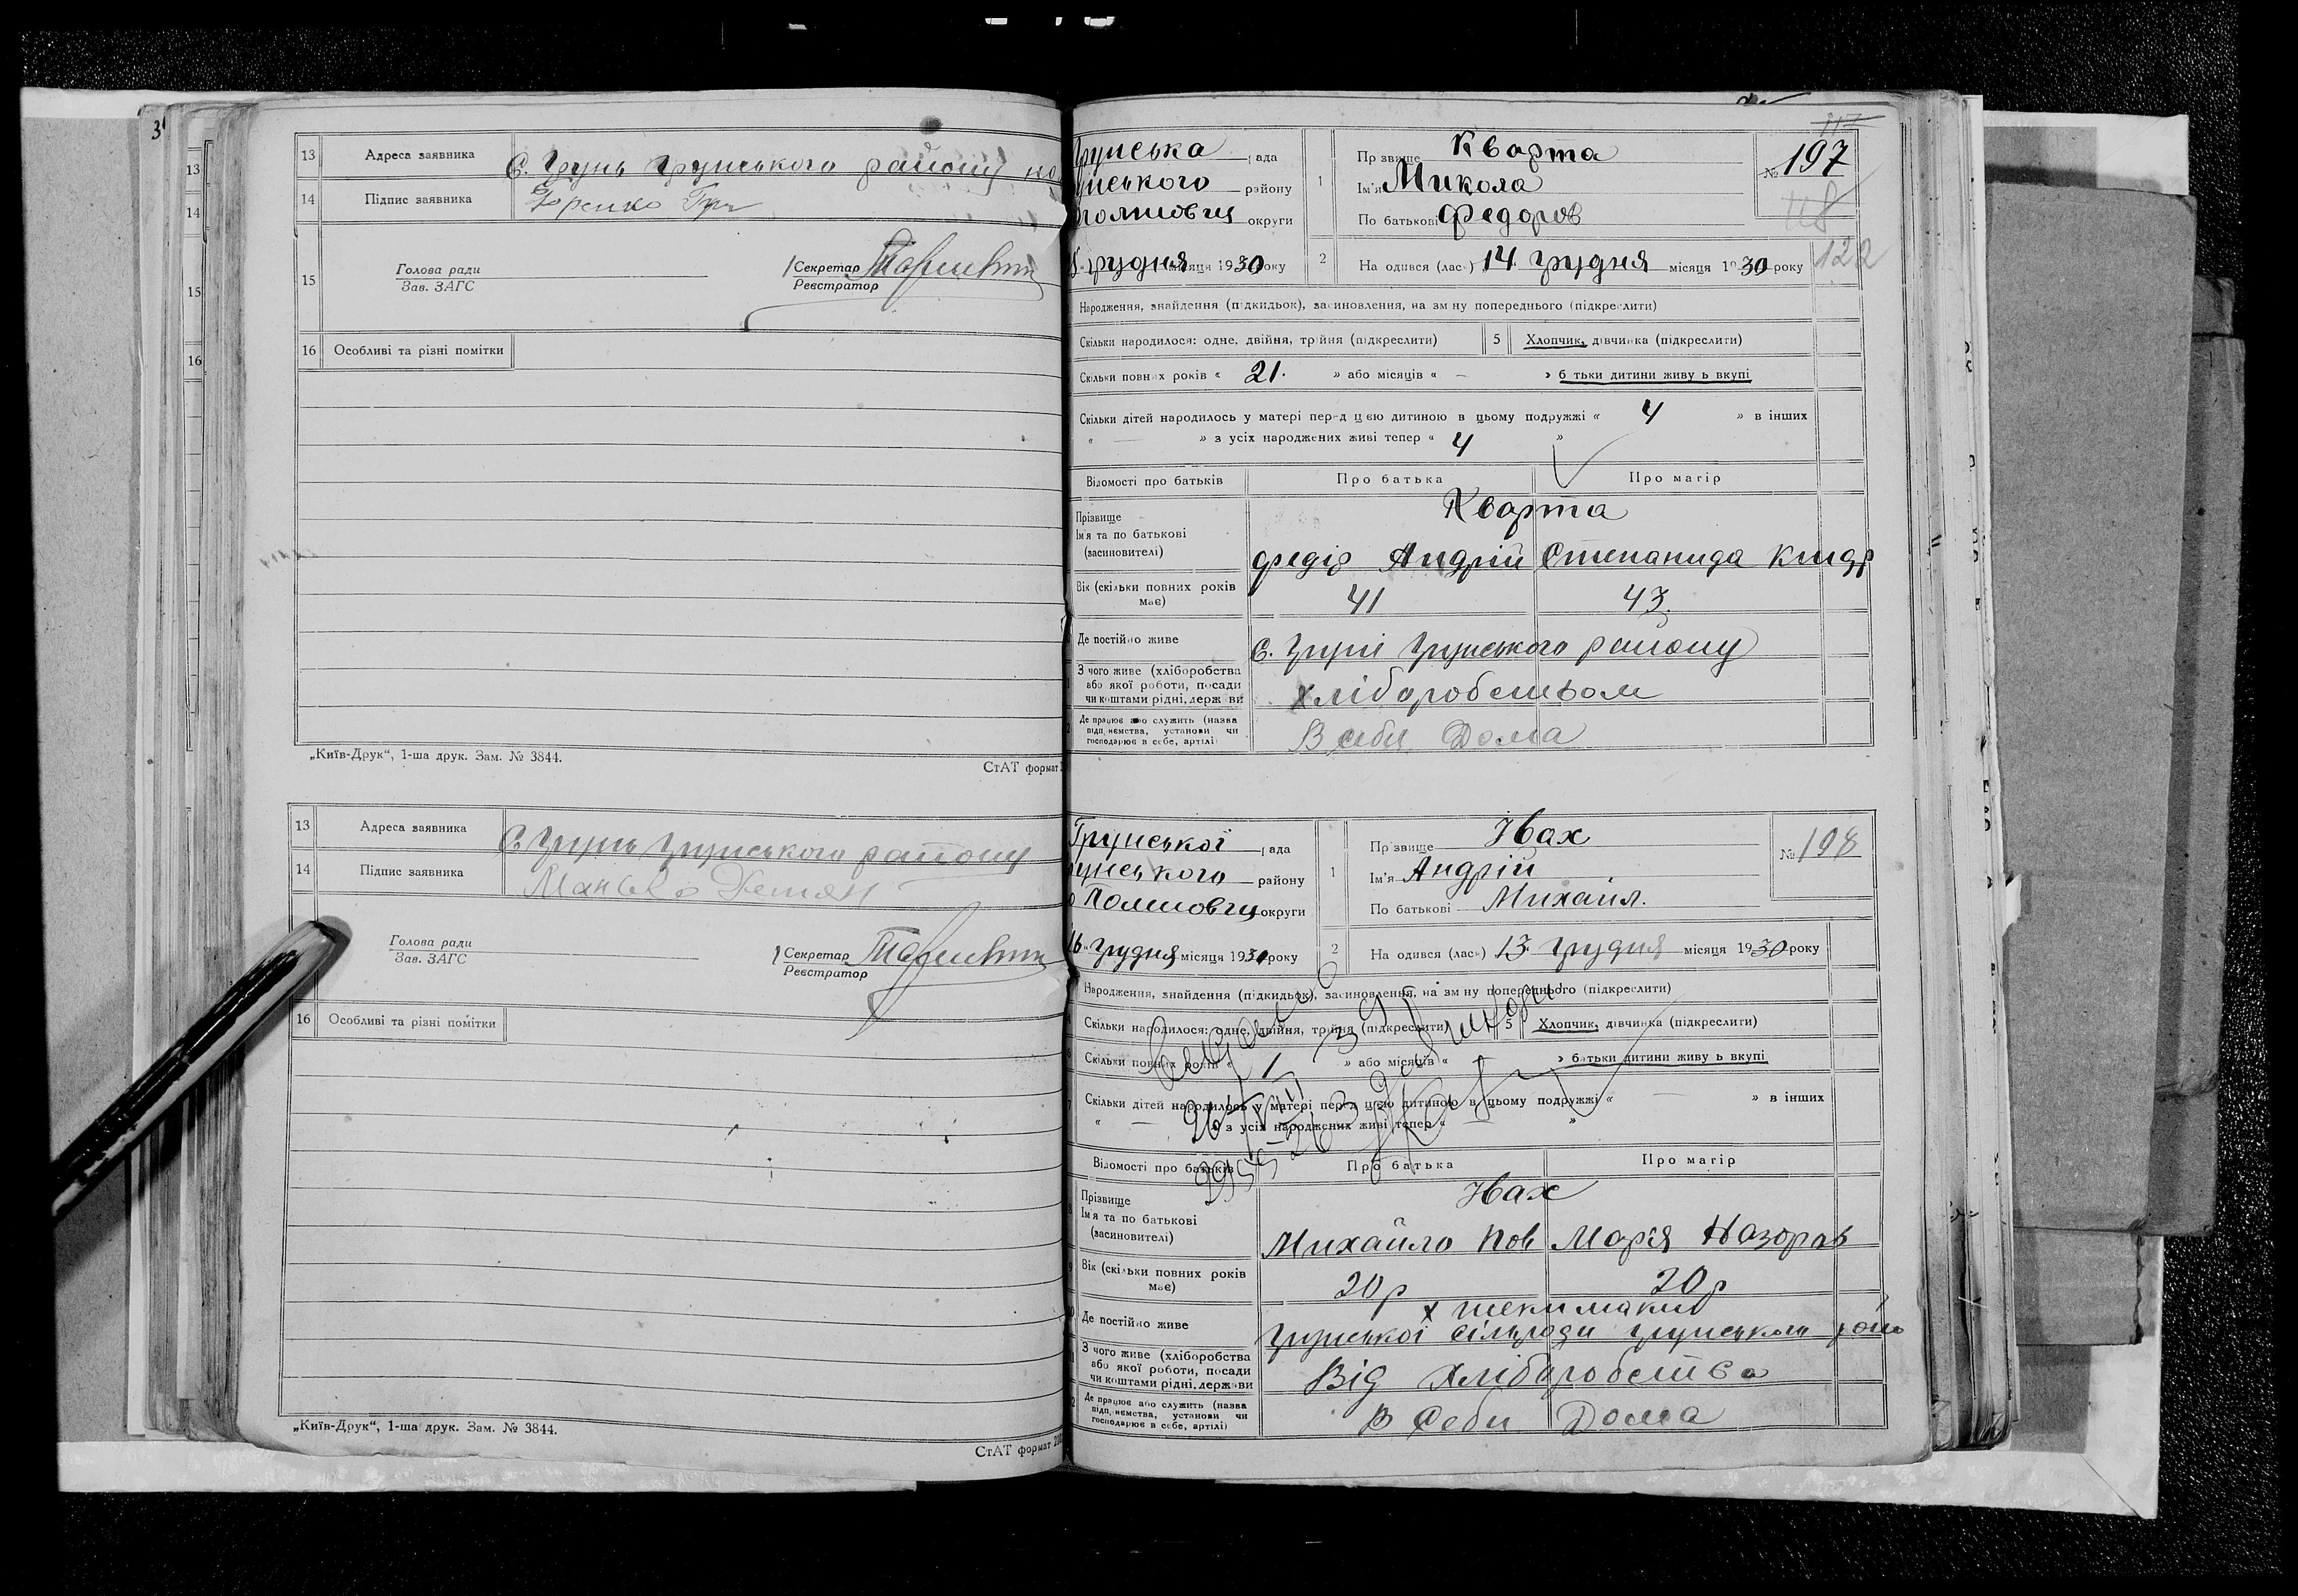 3
13
14
15
16
13 Адреса заявника С. Грунь Грунського району
14 Підпис заявника
15
Голова ради
Зав. ЗАГС
Секретар
Реєстратор
16 Особливі та різні помітки
„Київ-Друк“, 1-ша друк. Зам. № 3844.
СтАТ формат
13 Адреса заявника С. Грунь Грунського району
14 Підпис заявника
Голова ради
Зав. ЗАГС
Секретар
Реєстратор
16 Особливі та різні помітки
„Київ-Друк“, 1-ша друк. Зам. № 3844.
СтАТ формат
Грунська рада
унського району
округи
грудня місяця 1930 року
1 Прізвище Кварта
Ім'я Микола
По батькові Федоров
117
№ 197
118
122
2 Народився (лась) 14 грудня місяця 1930 року
Народження, знайдення (підкидьок), засиновлення, на зміну попереднього (підкреслити)
Скільки народилося: одне, двійня, трійня (підкреслити) 5 Хлопчик, дівчинка (підкреслити)
Скільки повних років « 21. » або місяців « — » батьки дитини живуть вкупі
Скільки дітей народилось у матері перед цією дитиною в цьому подружжі « 4 » в інших
« — » з усіх народжених живі тепер « 4 »
Відомості про батьків Про батька Про матір
Прізвище Кварта
Ім'я та по батькові
(засиновителі) Федір Андрій Степанида
Вік (скільки повних років має) 41 43
Де постійно живе С. Груні Грунського району
З чого живе (хліборобства або якої роботи, посади чи коштами рідні, держави хліборобством
Де працює або служить (назва підприємства, установи чи господарює в себе, артілі) В себи Дома
Грунської рада
рунського району
округи
16 грудня місяця 1930 року
1 Прізвище Івах
Ім'я Андрій
По батькові Михайл.
№ 198
2 Народився (лась) 13 грудня місяця 1930 року
Народження, знайдення (підкидьок), засиновлення, на зміну попереднього (підкреслити)
Скільки народилося: одне, двійня, трійня (підкреслити) 5 Хлопчик, дівчинка (підкреслити)
Скільки повних років « 1 » або місяців « » батьки дитини живуть вкупі
Скільки дітей народилось у матері перед цією дитиною в цьому подружжі « — » в інших
« — » з усіх народжених живі тепер « — »
Відомості про батьків Про батька Про матір
Прізвище Івах
Ім'я та по батькові
(засиновителі) Михайло Пов Марія Назаров
Вік (скільки повних років має) 20 р 20 р
Де постійно живе
Грунської сільради Грунського
З чого живе (хліборобства або якої роботи, посади чи коштами рідні, держави Від Хліборобства
Де працює або служить (назва підприємства, установи чи господарює в себе, артілі) В Себи Дома